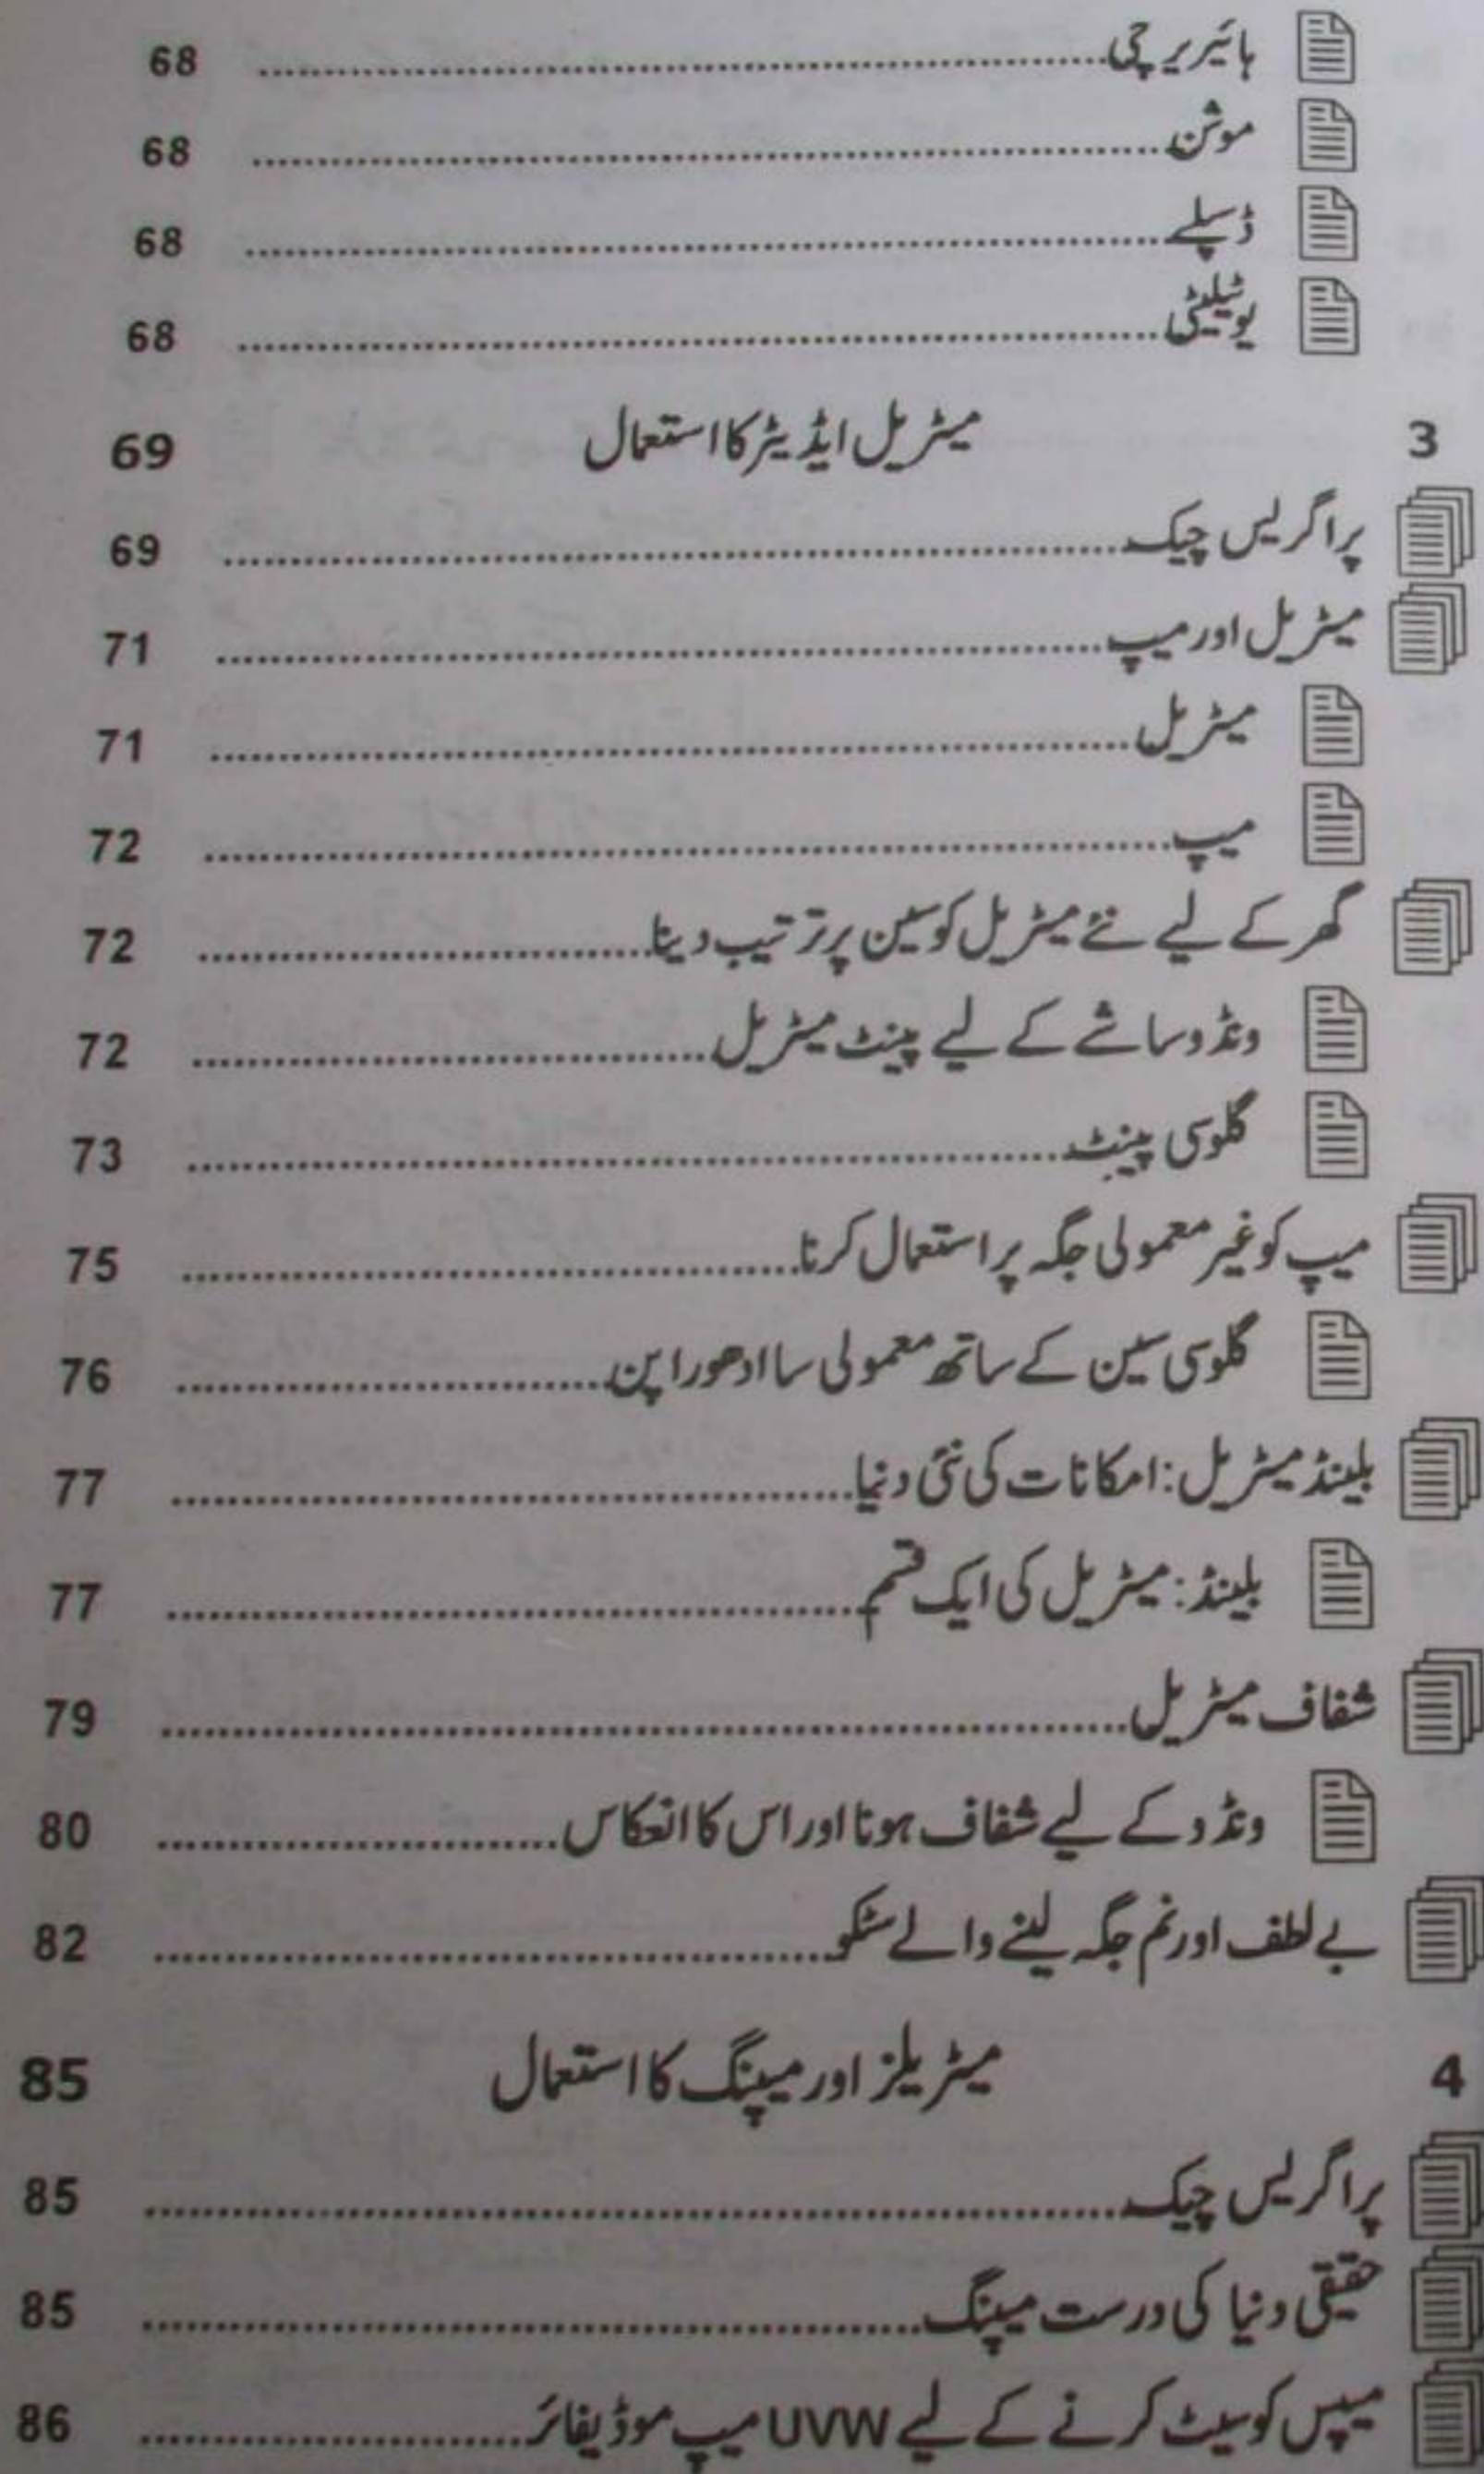 ہائیریرچی 68
موشن 68
ڈسپلے 68
یوٹیلیٹی 68
3 میٹریل ایڈیٹر کا استعمال 69
پراگریس چیک 69
میٹریل اور میپ 71
میٹریل 71
میپ 72
گھر کے لیے نئے میٹریل کو سین پر ترتیب دینا 72
ونڈو سائے کے لیے پینٹ میٹریل 72
گلوسی پینٹ 73
میپ کو غیر معمولی جگہ پر استعمال کرنا 75
گلوسی سین کے ساتھ معمولی سا ادھورا پن 76
بلینڈ میٹریل: امکانات کی نئی دنیا 77
بلینڈ: میٹریل کی ایک قسم 77
شفاف میٹریل 79
ونڈو کے لیے شفاف ہونا اور اس کا انعکاس 80
بے لطف اور نم جگہ لینے والے سٹکو 82
4 میٹریلز اور میپنگ کا استعمال 85
پراگریس چیک 85
حقیقی دنیا کی درست میپنگ 85
میپس کو سیٹ کرنے کے لیے UVW میپ موڈیفائر 86